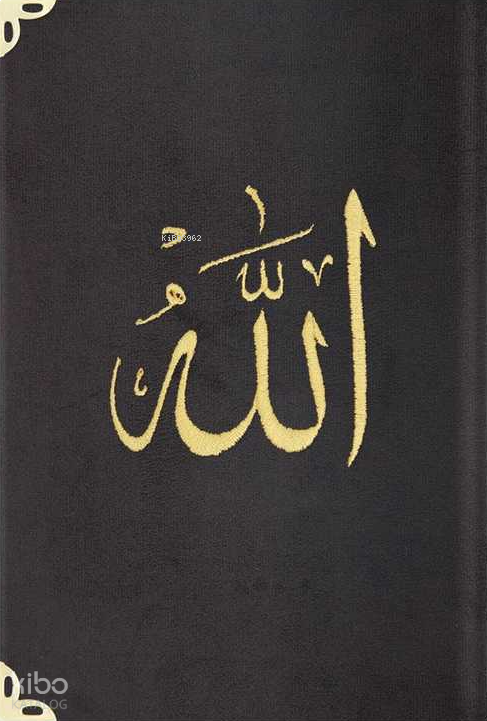 الله
KiBo3962
kibo
KATALOG